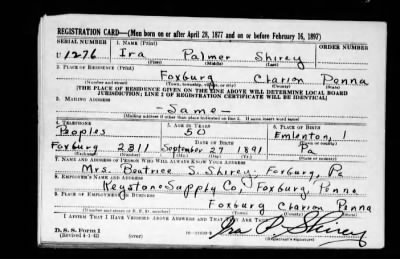 REGISTRATION CARD—(Men born on or after April 28, 1877 and on or before February 16, 1897)
SERIAL NUMBER 1. NAME (Print) ORDER NUMBER
U 1276 Ira Palmer Shirey
(First) (Middle) (Last)
2. PLACE OF RESIDENCE (Print)
Foxburg Clarion Penna
(Number and street) (Town, township, village, or city) (County) (State)
[THE PLACE OF RESIDENCE GIVEN ON THE LINE ABOVE WILL DETERMINE LOCAL BOARD
JURISDICTION; LINE 2 OF REGISTRATION CERTIFICATE WILL BE IDENTICAL]
3. MAILING ADDRESS
-Same-
(Mailing address if other than place indicated on line 2. If same insert word same)
4. TELEPHONE 5. AGE IN YEARS 6. PLACE OF BIRTH
Peoples 50 Emlenton,
DATE OF BIRTH (Town or county)
Foxburg 2311 September 27 1891 Pa
(Exchange) (Number) (Mo.) (Day) (Yr.) (State or country)
7. NAME AND ADDRESS OF PERSON WHO WILL ALWAYS KNOW YOUR ADDRESS
Mrs. Beatrice S. Shirey, Foxburg, Pa
8. EMPLOYER'S NAME AND ADDRESS
Keystone Supply Co, Foxburg, Penna
9. PLACE OF EMPLOYMENT OR BUSINESS
Foxburg Clarion Penna
(Number and street or R. F. D. number) (Town) (County) (State)
I AFFIRM THAT I HAVE VERIFIED ABOVE ANSWERS AND THAT THEY ARE TRUE.
D. S. S. Form 1
(Revised 4-1-42) (over) Ira P. Shirey
(Registrant's signature)